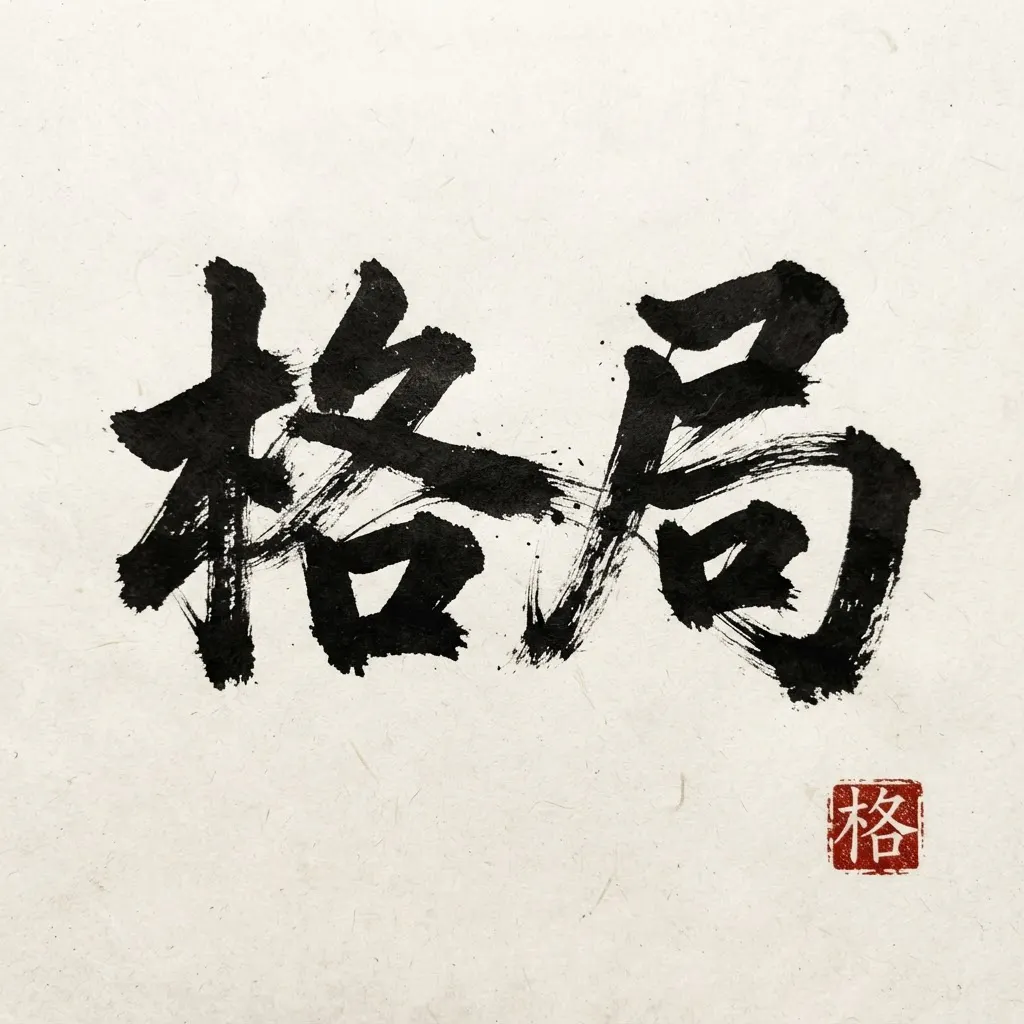 格局
格